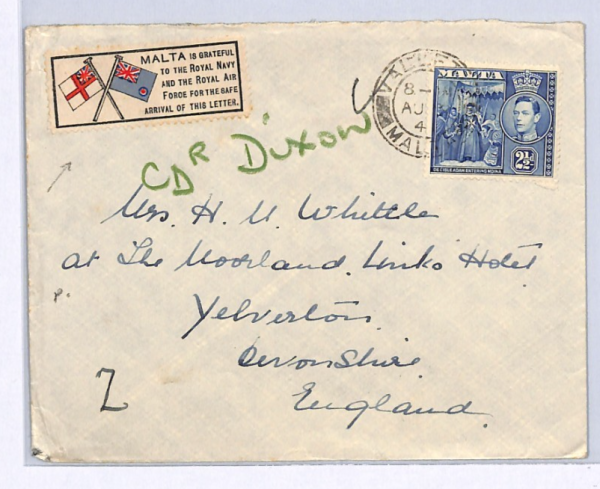 MALTA IS GRATEFUL
TO THE ROYAL NAVY
AND THE ROYAL AIR
FORCE FOR THE SAFE
ARRIVAL OF THIS LETTER.
MALTA
2½D
CDR DIXON
Mrs. H. U. Whittle
at The Moorland Links Hotel
Yelverton
Devonshire.
England.